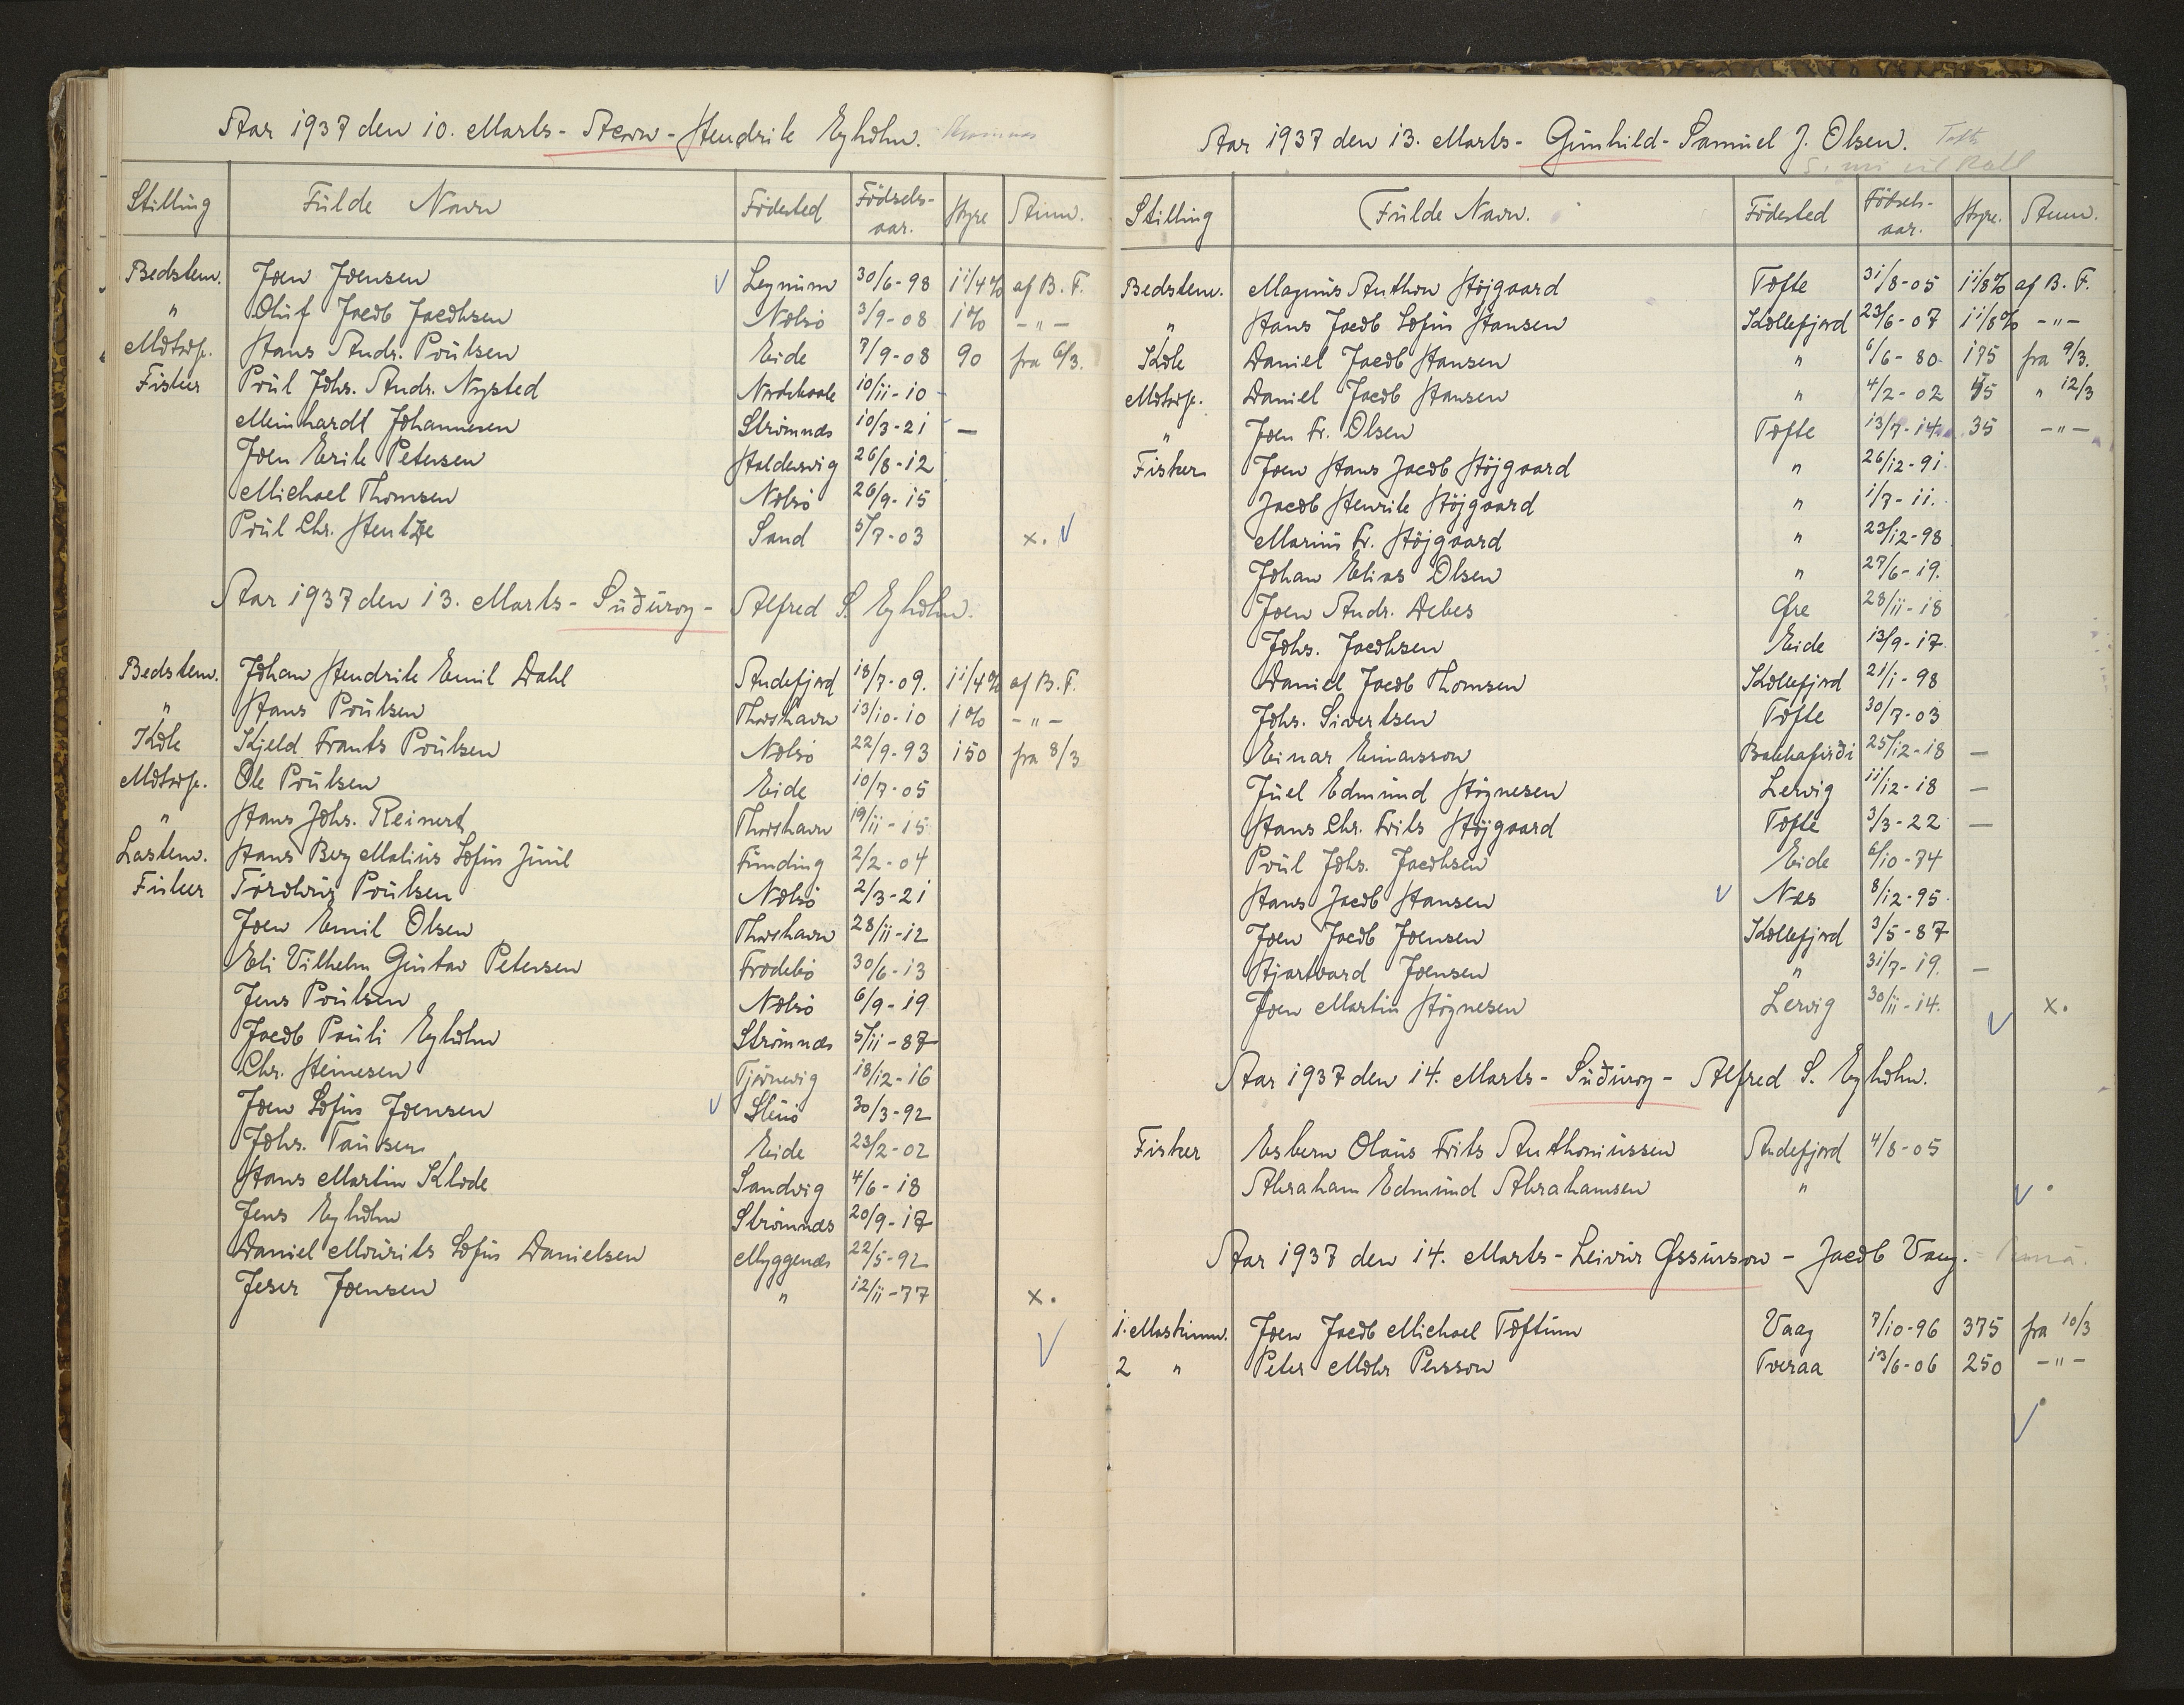 Aar 1937 den 10. Marts - Stern - Hendrik Eyholm.
Stilling Fulde Navn Födested Födsels-aar. Hyre Anm.
Bedstem. Joen Joensen Leynum 30/6-98 1 1/4% af B. F.
" Oluf Jacob Jacobsen Nolsö 3/9-08 1% -"-
Motorp. Hans Andr. Poulsen Eide 7/9-08 90 fra 6/3.
Fisker Poul Johs. Andr. Nysted Nordskaale 10/11-10
Meinhardt Johannesen Strömnæs 10/3-21 —
Joen Erik Petersen Haldersvig 26/8-12
Michael Thomsen Nolsö 26/9-15
Poul Chr. Hentze Sand 5/7-03 x.
Aar 1937 den 13. Marts - Suðuroy - Alfred S. Eyholm.
Bedstem. Johan Hendrik Emil Dahl Andefjord 18/7-09. 1 1/4% af B. F.
" Hans Poulsen Thorshavn 13/10-10 1% -"-
Kok Kjeld Frants Poulsen Nolsö 22/9-93 150 fra 8/3
Motorp. Ole Poulsen Eide 10/7-05
" Hans Johs. Reinert Thorshavn 19/11-15
Lastem. Hans Berg Malius Sofus Juul Funding 2/2-04
Fisker Poulsen Nolsö 2/3-21
Joen Emil Olsen Thorshavn 28/11-12
Eli Vilhelm Gustav Petersen Frodebö 30/6-13
Jens Poulsen Nolsö 6/9-19
Jacob Pauli Eyholm Strömnæs 5/11-87
Chr. Heinesen Tjörnevig 18/12-16
Joen Sofus Joensen 30/3-92
Johs. Tausen Eide 23/2-02
Hans Martin Klode Sandvig 4/6-18
Jens Eyholm Strömnæs 20/9-17
Daniel Mourits Sofus Danielsen Myggenæs 22/5-92
Joensen " 12/11-77 x.
Aar 1937 den 13. Marts - Gunhild - Samuel J. Olsen. Tofte
Stilling Fulde Navn. Födested Födsels-aar. Hyre. Anm.
Bedstem. Magnus Anthon Höjgaard Tofte 31/8-05 1 1/8% af B. F.
" Hans Jacob Sofus Hansen Kollefjord 23/6-07 1 1/8% -"-
Kok Daniel Jacob Hansen " 6/6-80 175 fra 9/3.
Motorp. Daniel Jacob Hansen " 4/2-02 " 12/3
" Joen Fr. Olsen Tofte 13/7-14 35 -"-
Fisker Joen Hans Jacob Höjgaard " 26/12-91
Jacob Henrik Höjgaard " 1/7-11.
Marius Fr. Höjgaard " 23/12-98
Johan Elias Olsen " 27/6-19.
Joen Andr. Debes Øre 28/11-18
Johs. Jacobsen Eide 13/9-17
Daniel Jacob Thomsen Kollefjord 21/1-98
Johs. Sivertsen Tofte 30/7-03
Einar Einarsson Bakkafirði 25/12-18 —
Juel Edmund Högnesen Lervig 11/12-18 —
Hans Chr. Frits Höjgaard Tofte 3/3-22 —
Poul Johs. Jacobsen Eide 6/10-74
Hans Jacob Hansen Næs 8/12-95
Joen Jacob Joensen Kollefjord 3/5-87
Hjartvard Joensen " 31/7-19. —
Joen Martin Högnesen Lervig 30/11-14. x.
Aar 1937 den 14. Marts - Suðuroy - Alfred S. Eyholm.
Fisker Esbern Olaus Frits Anthoniussen Andefjord 4/8-05
Abraham Edmund Abrahamsen "
Aar 1937 den 14. Marts - Leivur Øssursson - Jacob Vaag.
1. Maskinm. Joen Jacob Michael Toftum Vaag 7/10-96 375 fra 10/3
2 " Peter Mohr Persson Tveraa 13/6-06 250 -"-